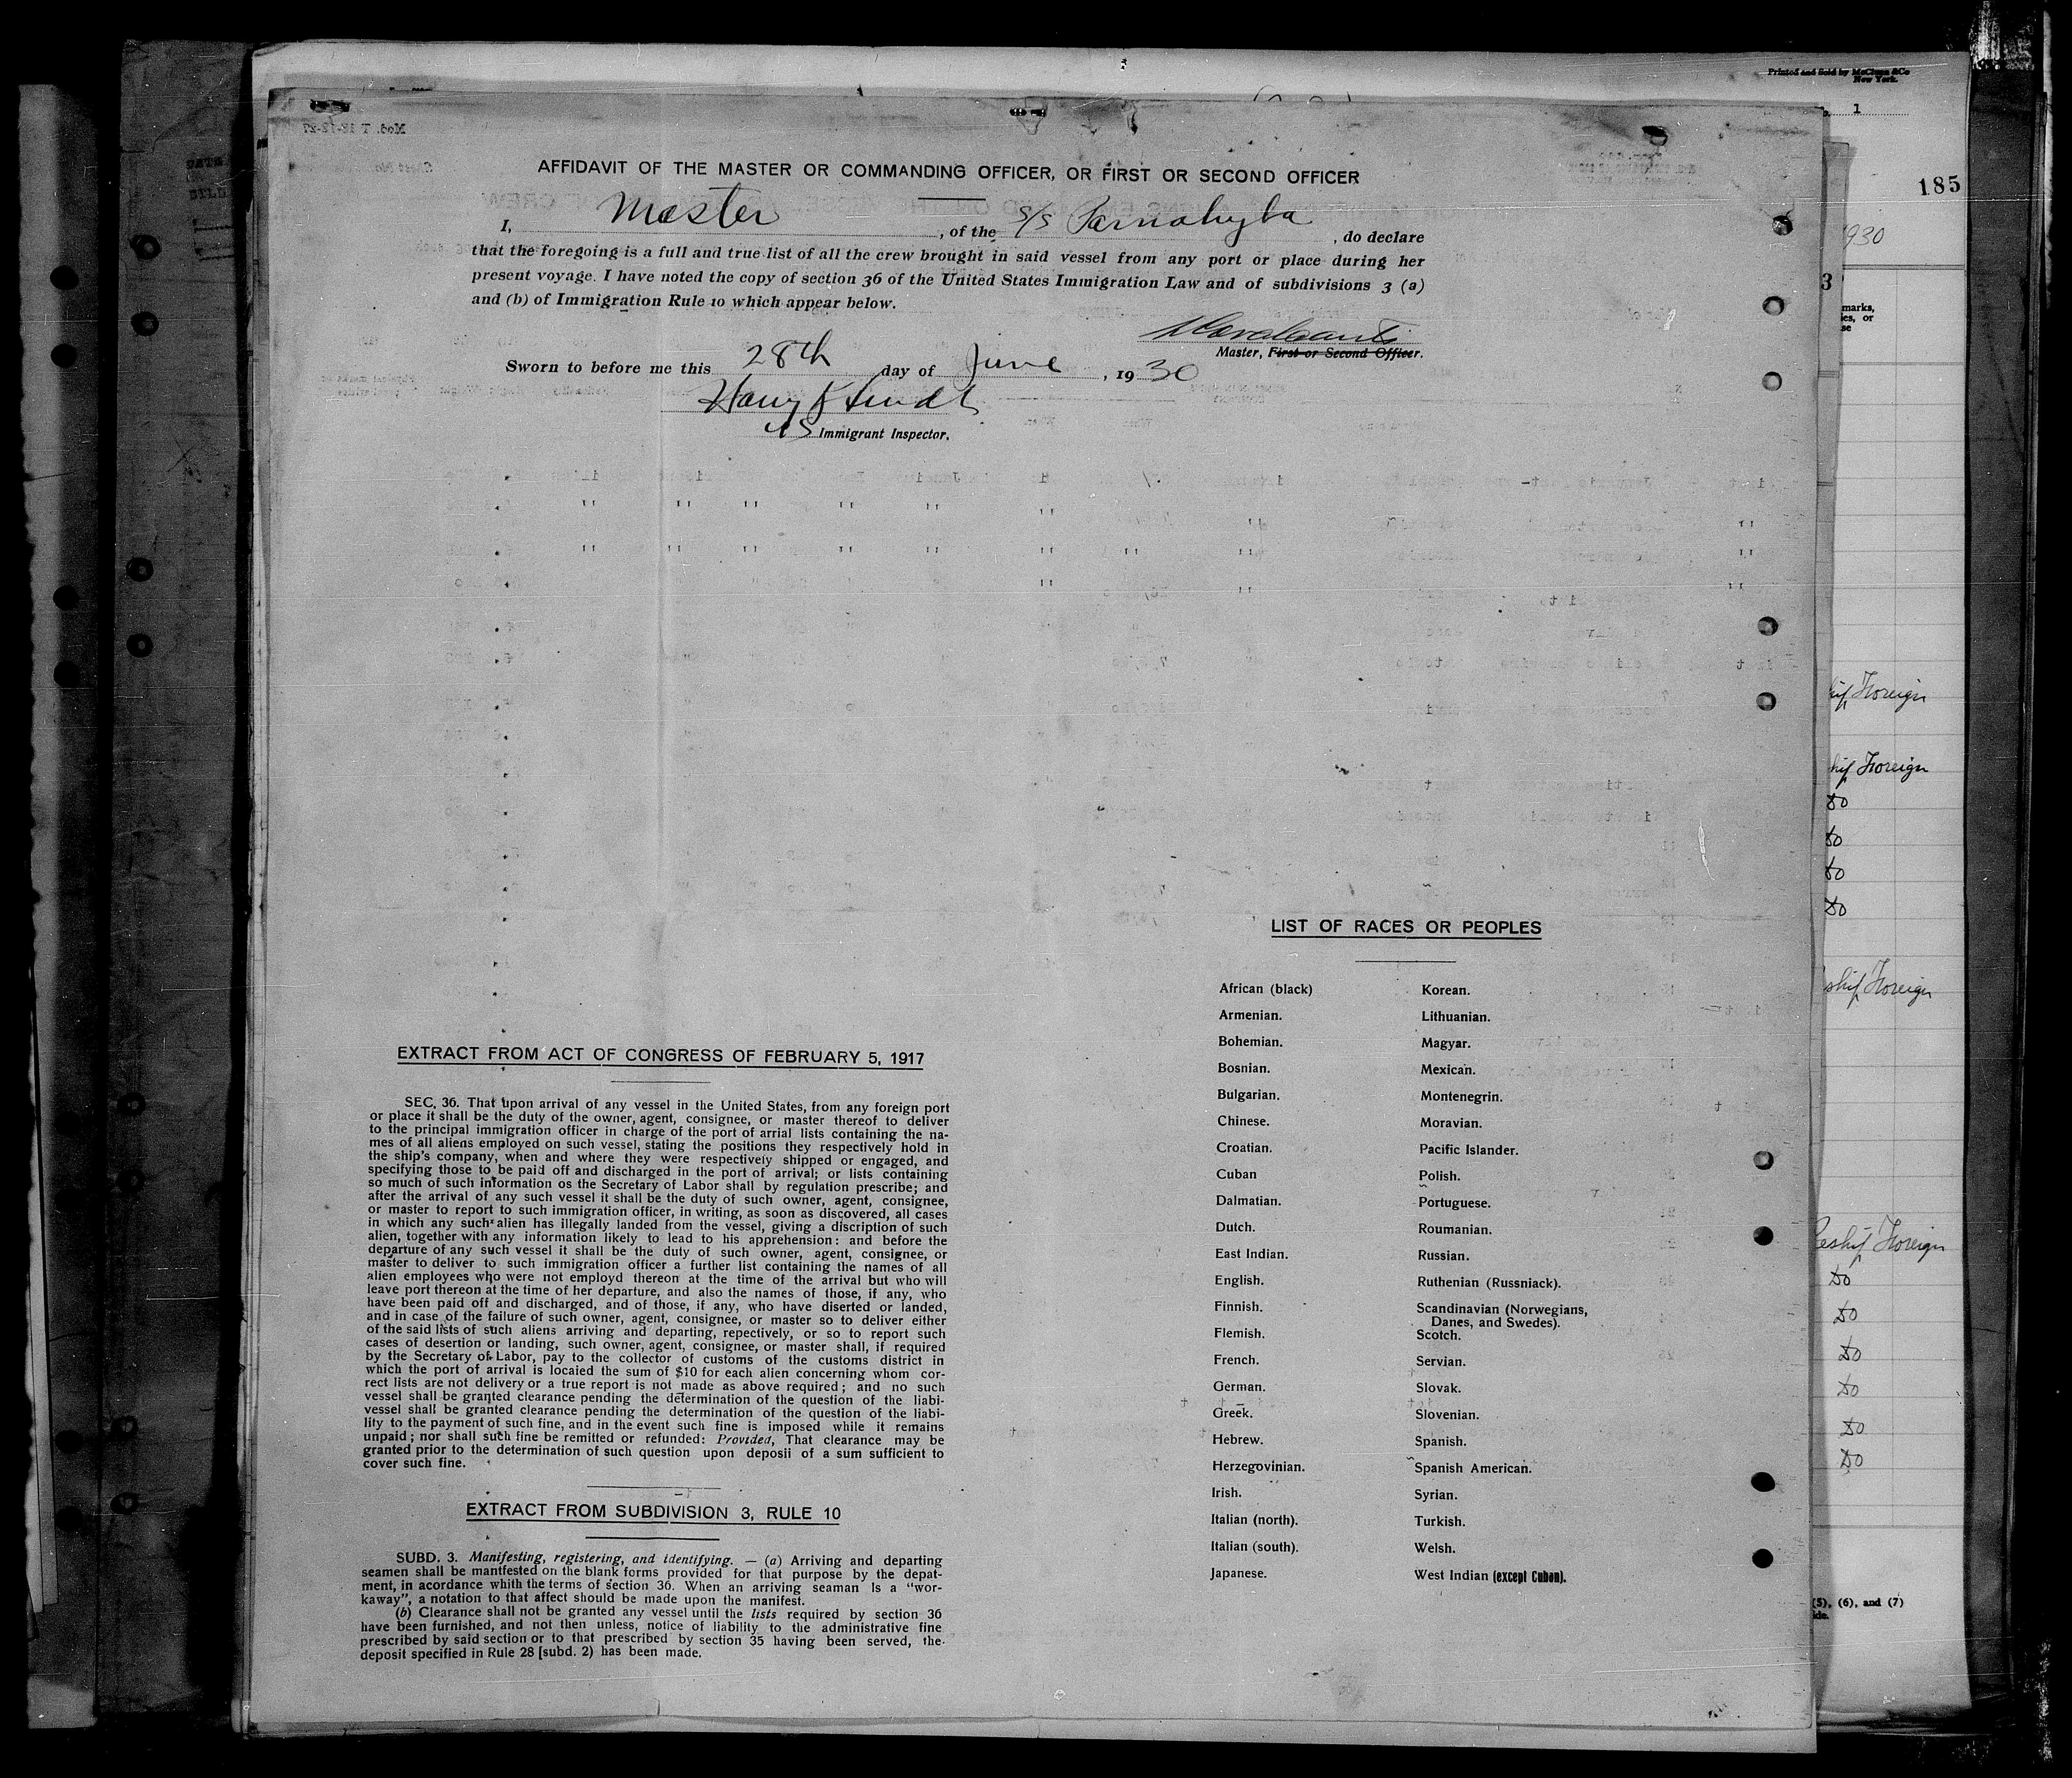 Printed and Sold by McClunn & Co
New York.
1
185
1930
3
marks,
ies, or
se
AFFIDAVIT OF THE MASTER OR COMMANDING OFFICER, OR FIRST OR SECOND OFFICER
I, Master, of the S/S Parnahyba, do declare
that the foregoing is a full and true list of all the crew brought in said vessel from any port or place during her
present voyage. I have noted the copy of section 36 of the United States Immigration Law and of subdivisions 3 (a)
and (b) of Immigration Rule 10 which appear below.
Master, First or Second Officer.
Sworn to before me this 28th day of June, 1930
Harry
US Immigrant Inspector.
ship Foreign
ship Foreign
do
do
do
do
ship Foreign
Reship Foreign
do
do
do
do
do
do
EXTRACT FROM ACT OF CONGRESS OF FEBRUARY 5, 1917
SEC, 36. That upon arrival of any vessel in the United States, from any foreign port
or place it shall be the duty of the owner, agent, consignee, or master thereof to deliver
to the principal immigration officer in charge of the port of arrial lists containing the na-
mes of all aliens employed on such vessel, stating the positions they respectively hold in
the ship's company, when and where they were respectively shipped or engaged, and
specifying those to be paid off and discharged in the port of arrival; or lists containing
so much of such information os the Secretary of Labor shall by regulation prescribe; and
after the arrival of any such vessel it shall be the duty of such owner, agent, consignee,
or master to report to such immigration officer, in writing, as soon as discovered, all cases
in which any such alien has illegally landed from the vessel, giving a discription of such
alien, together with any information likely to lead to his apprehension: and before the
departure of any such vessel it shall be the duty of such owner, agent, consignee, or
master to deliver to such immigration officer a further list containing the names of all
alien employees who were not employd thereon at the time of the arrival but who will
leave port thereon at the time of her departure, and also the names of those, if any, who
have been paid off and discharged, and of those, if any, who have diserted or landed,
and in case of the failure of such owner, agent, consignee, or master so to deliver either
of the said lists of such aliens arriving and departing, repectively, or so to report such
cases of desertion or landing, such owner, agent, consignee, or master shall, if required
by the Secretary of Labor, pay to the collector of customs of the customs district in
which the port of arrival is locaied the sum of $10 for each alien concerning whom cor-
rect lists are not delivery or a true report is not made as above required; and no such
vessel shall be granted clearance pending the determination of the question of the liabi-
vessel shall be granted clearance pending the determination of the question of the liabi-
lity to the payment of such fine, and in the event such fine is imposed while it remains
unpaid; nor shall such fine be remitted or refunded: Provided, That clearance may be
granted prior to the determination of such question upon deposii of a sum sufficient to
cover such fine.
EXTRACT FROM SUBDIVISION 3, RULE 10
SUBD. 3. Manifesting, registering, and identifying. — (a) Arriving and departing
seamen shall be mantfested on the blank forms provided for that purpose by the depat-
ment, in acordance whith the terms of section 36. When an arriving seaman Is a "wor-
kaway", a notation to that affect should be made upon the manifest.
(b) Clearance shall not be granted any vessel until the lists required by section 36
have been furnished, and not then unless, notice of liability to the administrative fine
prescribed by said section or to that prescribed by section 35 having been served, the
deposit specified in Rule 28 [subd. 2) has been made.
LIST OF RACES OR PEOPLES
African (black)
Armenian.
Bohemian.
Bosnian.
Bulgarian.
Chinese.
Croatian.
Cuban
Dalmatian.
Dutch.
East Indian.
English.
Finnish.
Flemish.
French.
German.
Greek.
Hebrew.
Herzegovinian.
Irish.
Italian (north).
Italian (south).
Japanese.
Korean.
Lithuanian.
Magyar.
Mexican.
Montenegrin.
Moravian.
Pacific Islander.
Polish.
Portuguese.
Roumanian.
Russian.
Ruthenian (Russniack).
Scandinavian (Norwegians,
Danes, and Swedes).
Scotch.
Servian.
Slovak.
Slovenian.
Spanish.
Spanish American.
Syrian.
Turkish.
Welsh.
West Indian (except Cuban).
(5), (6), and (7)
ide.